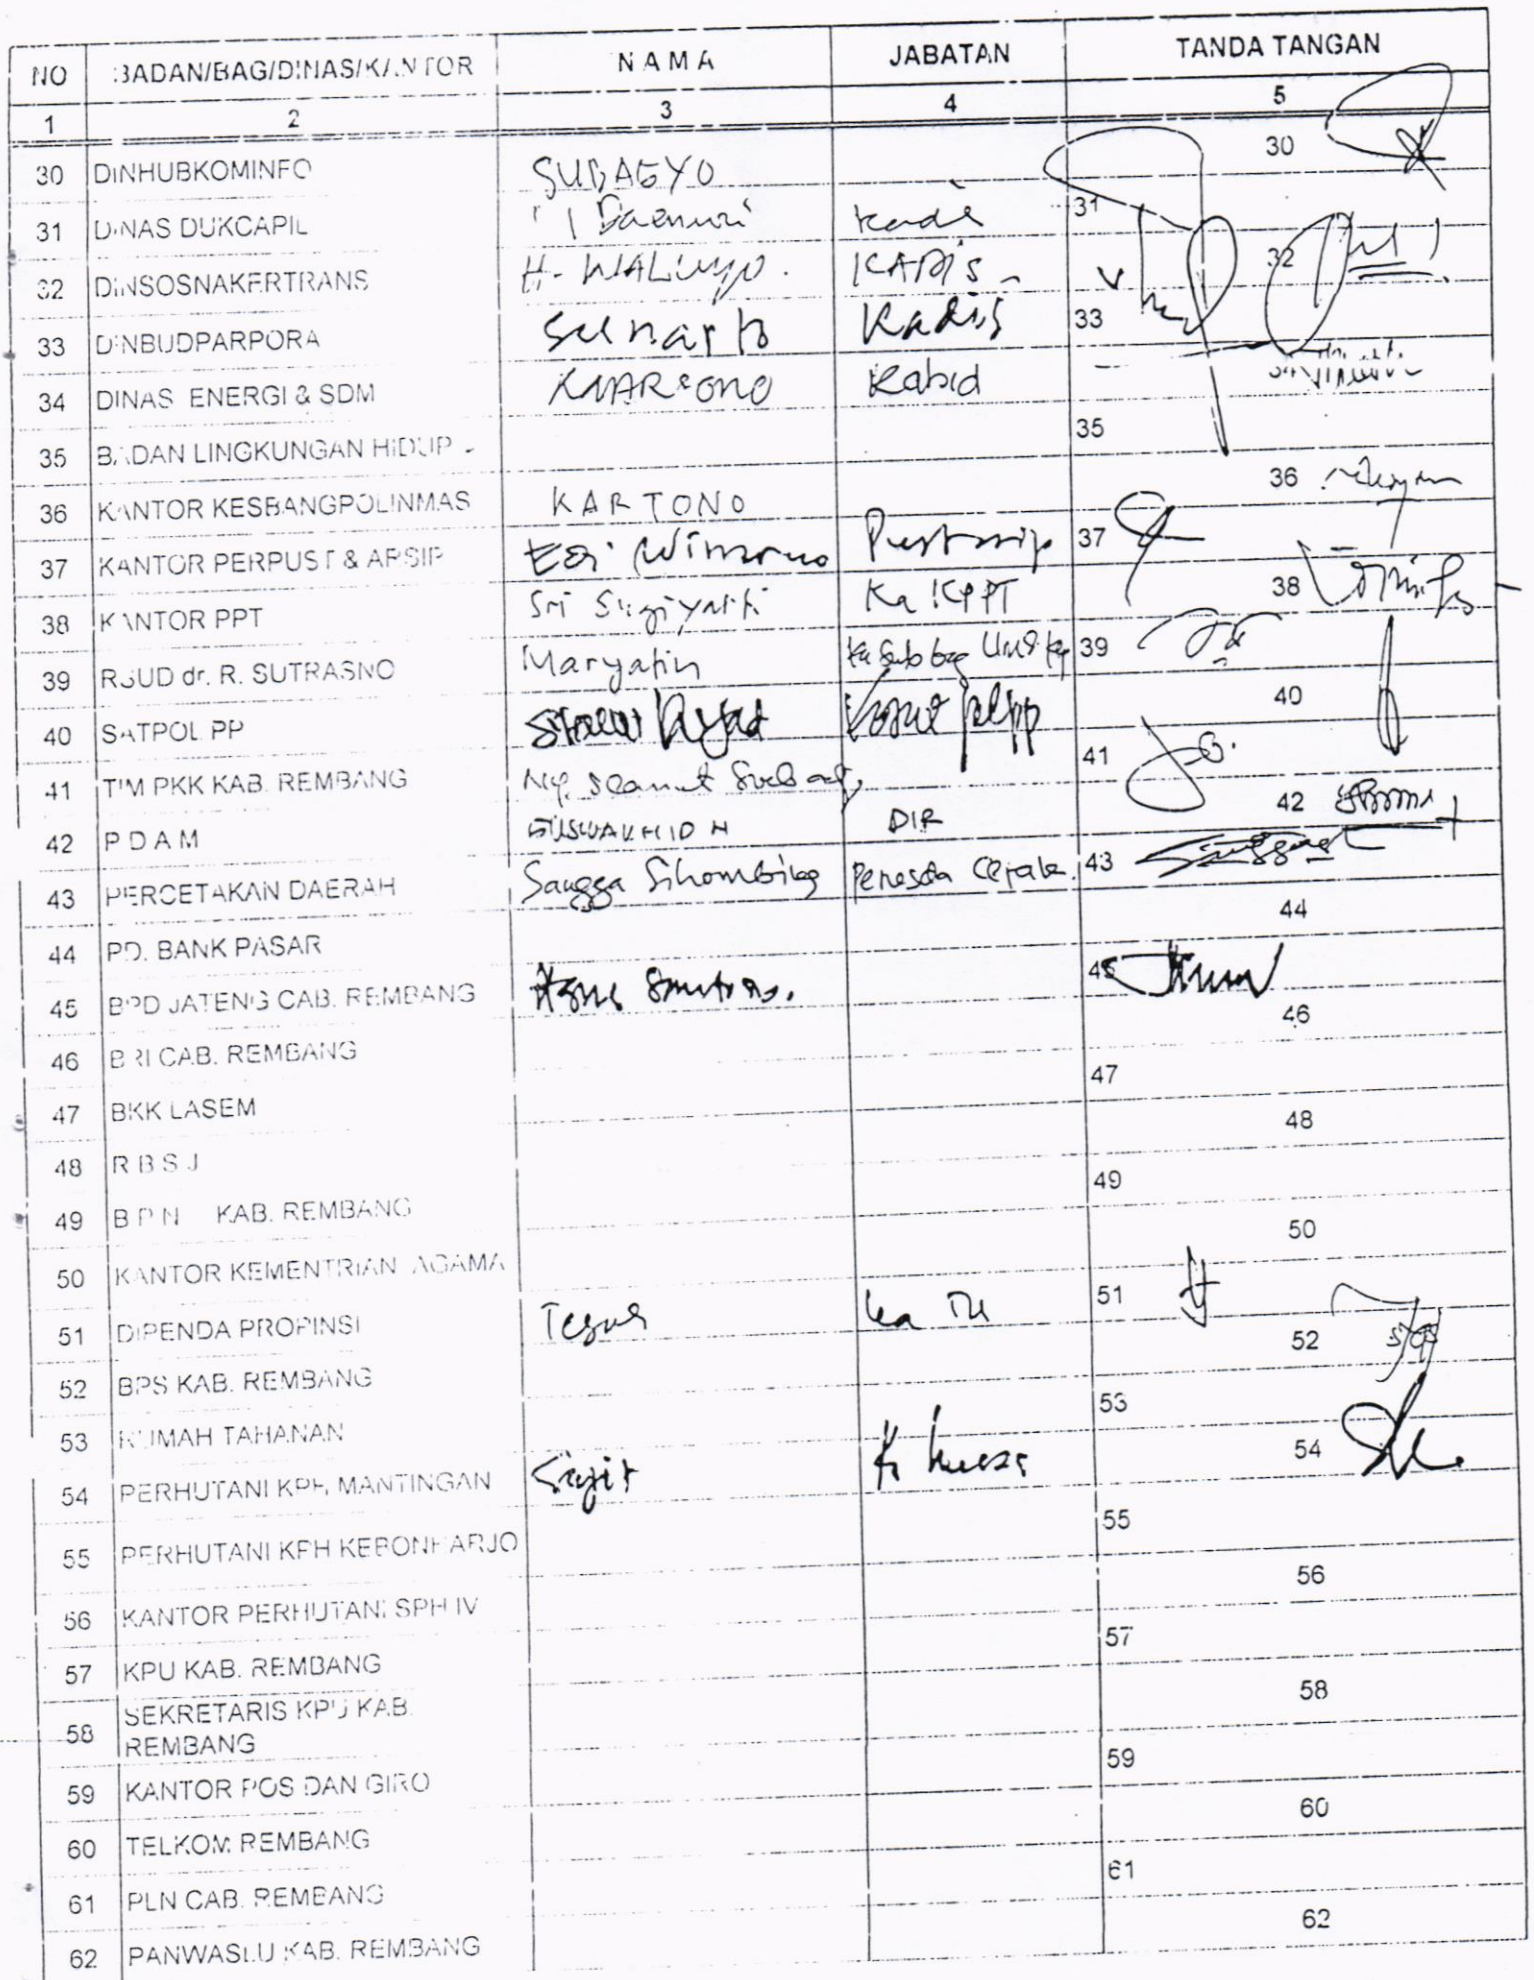 NO BADAN/BAG/DINAS/KANTOR N A M A JABATAN TANDA TANGAN
1 2 3 4 5
30 DINHUBKOMINFO SUBAGYO 30
31 DINAS DUKCAPIL Daenuri Kadis 31
32 DINSOSNAKERTRANS H. WALUYO. KADIS 32
33 DINBUDPARPORA Sunarto Kadis 33
34 DINAS ENERGI & SDM Kabid 34
35 BADAN LINGKUNGAN HIDUP 35
36 KANTOR KESBANGPOLINMAS KARTONO 36
37 KANTOR PERPUST & ARSIP Edi Winarno 37
38 KANTOR PPT Sri Sugiyarti Ka KPPT 38
39 RSUD dr. R. SUTRASNO Maryatin Ka Subbag 39
40 SATPOL PP 40
41 TIM PKK KAB. REMBANG Ny. Slamet 41
42 P D A M DIR 42
43 PERCETAKAN DAERAH Sangga Sihombing 43
44 PD. BANK PASAR 44
45 BPD JATENG CAB. REMBANG Agus 45
46 BRI CAB. REMBANG 46
47 BKK LASEM 47
48 R B S J 48
49 B P N KAB. REMBANG 49
50 KANTOR KEMENTRIAN AGAMA 50
51 DIPENDA PROPINSI Teguh Ka TU 51
52 BPS KAB. REMBANG 52
53 RUMAH TAHANAN 53
54 PERHUTANI KPH MANTINGAN Sigit 54
55 PERHUTANI KPH KEBONHARJO 55
56 KANTOR PERHUTANI SPH IV 56
57 KPU KAB. REMBANG 57
58 SEKRETARIS KPU KAB. 58
REMBANG
59 KANTOR POS DAN GIRO 59
60 TELKOM REMBANG 60
61 PLN CAB. REMBANG 61
62 PANWASLU KAB. REMBANG 62